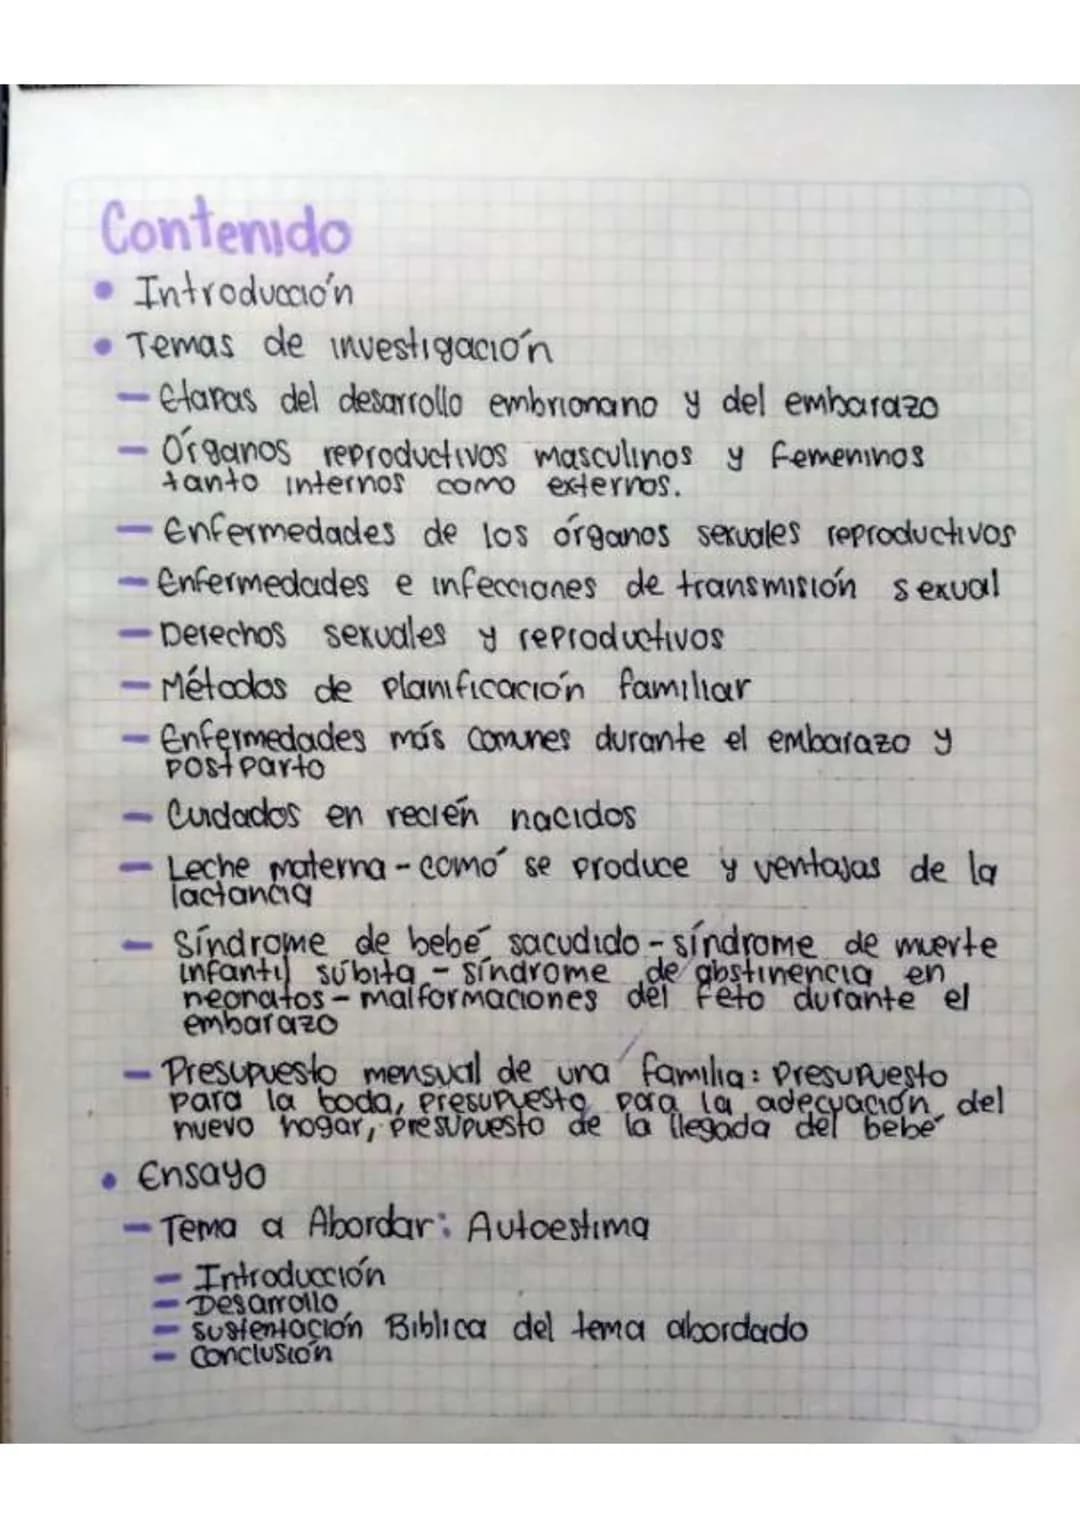 Contenido
• Introducción
• Temas de investigación
— Etapas del desarrollo embrionario y del embarazo
— Órganos reproductivos masculinos y femeninos
tanto internos como externos.
— Enfermedades de los órganos sexuales reproductivos
— Enfermedades e infecciones de transmisión sexual
— Derechos sexuales y reproductivos
— Métodos de planificación familiar
— Enfermedades más comunes durante el embarazo y
postparto
— Cuidados en recién nacidos
— Leche materna - comó se produce y ventajas de la
lactancia
— Síndrome de bebé sacudido - síndrome de muerte
infantil súbita - síndrome de abstinencia en
neonatos - malformaciones del feto durante el
embarazo
— Presupuesto mensual de una familia: presupuesto
para la boda, presupuesto para la adecuación del
nuevo hogar, presupuesto de la llegada del bebé
• Ensayo
— Tema a Abordar: Autoestima
— Introducción
— Desarrollo
— sustentación Biblica del tema abordado
— Conclusión